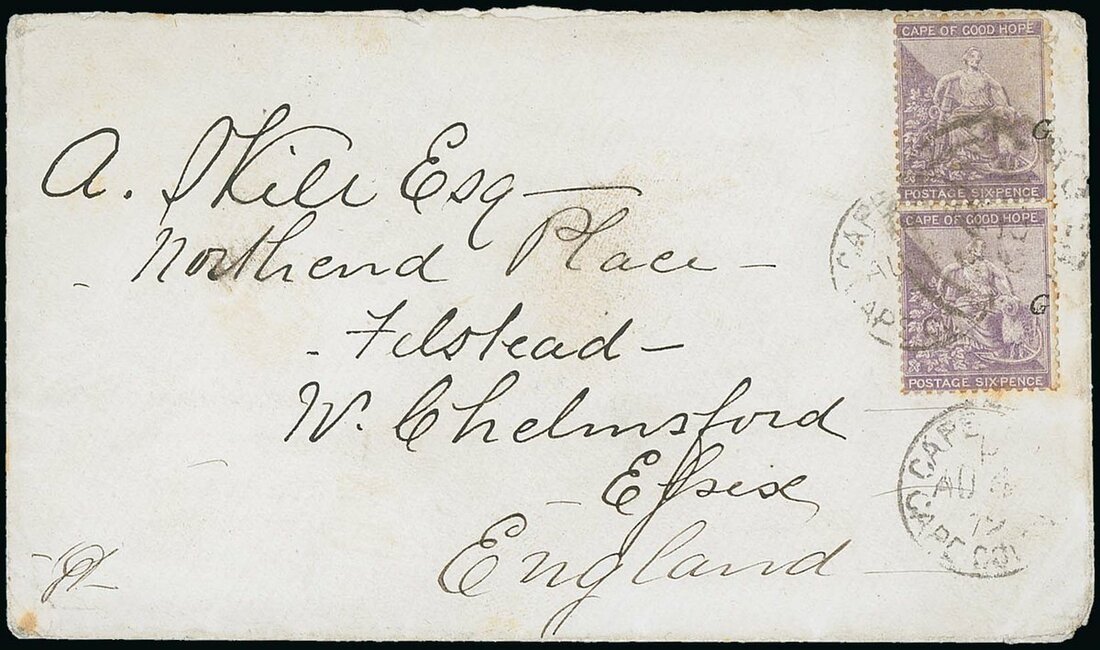 CAPE OF GOOD HOPE
G
POSTAGE SIX-PENCE
CAPE OF GOOD HOPE
G
POSTAGE SIX-PENCE
CAPE
AU
A. Skill Esq
Northend Place
Felstead
W. Chelmsford
Essex
England
CAPE
AU
79
CAPE COL